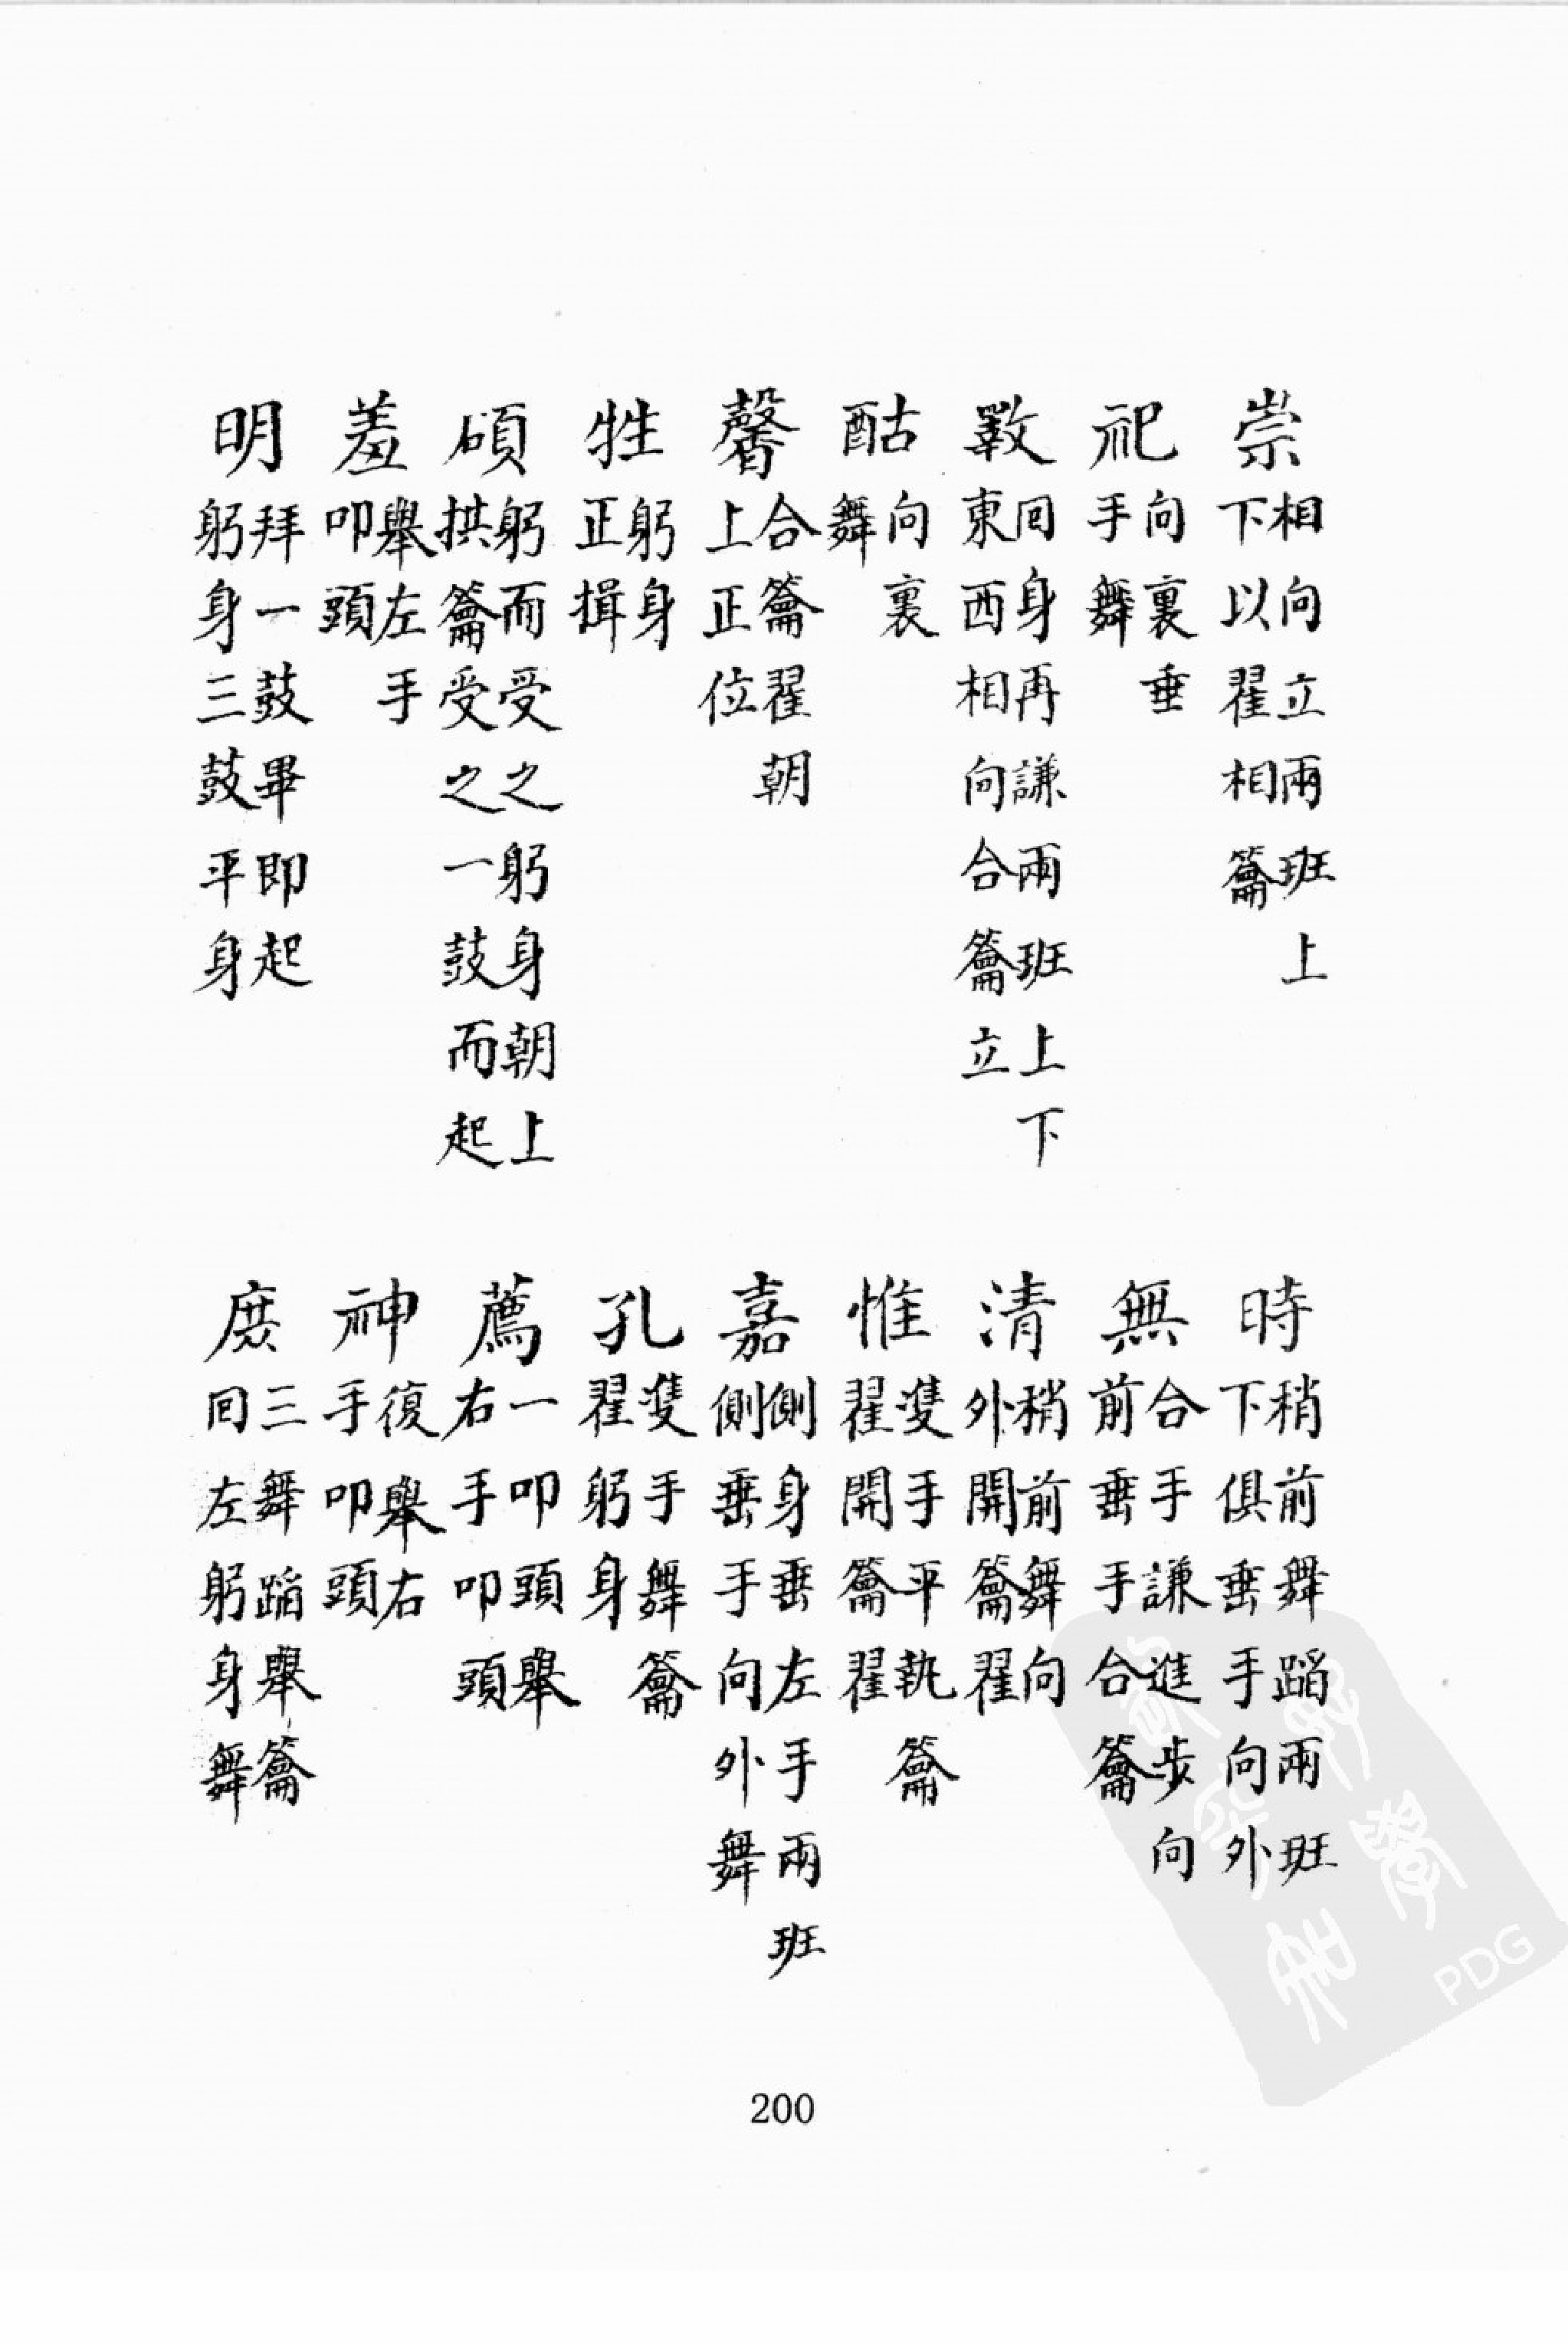 崇 相向立兩班上下以翟相籥
時 稍前舞蹈兩班下俱垂手向外
祀 向裏垂手舞
無 合手謙進步向前垂手合籥
斁 囘身再謙兩班上下東西相向合籥立
清 稍前舞向外開籥翟
酤 向裏舞
惟 雙手平執籥翟開籥翟
馨 合籥翟朝上正位
嘉 側身垂左手兩班側垂手向外舞
牲 躬身正揖
孔 雙手舞籥翟躬身
碩 躬而受之躬身朝上拱籥受之一鼓而起
薦 一叩頭舉右手叩頭
羞 舉左手叩頭
神 復舉右手叩頭
明 拜一鼓畢即起躬身三鼓平身
庶 三舞蹈舉籥囘左躬身舞
200
PDG